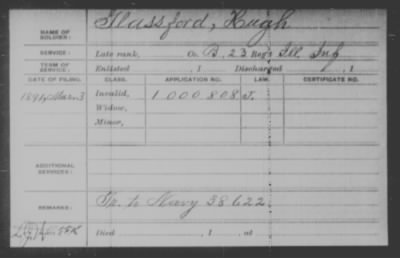 Glassford, Hugh
NAME OF SOLDIER:
SERVICE: Late rank, Co. B, 23 Reg't Ill. Inf
TERM OF SERVICE: Enlisted , 1 Discharged , 1
DATE OF FILING. CLASS. APPLICATION NO. LAW. CERTIFICATE NO.
1891 Mar 3 Invalid, 1.000.808 J.
Widow,
Minor,
ADDITIONAL SERVICES:
REMARKS: Tr. to Navy 38622.
Died , 1 , at